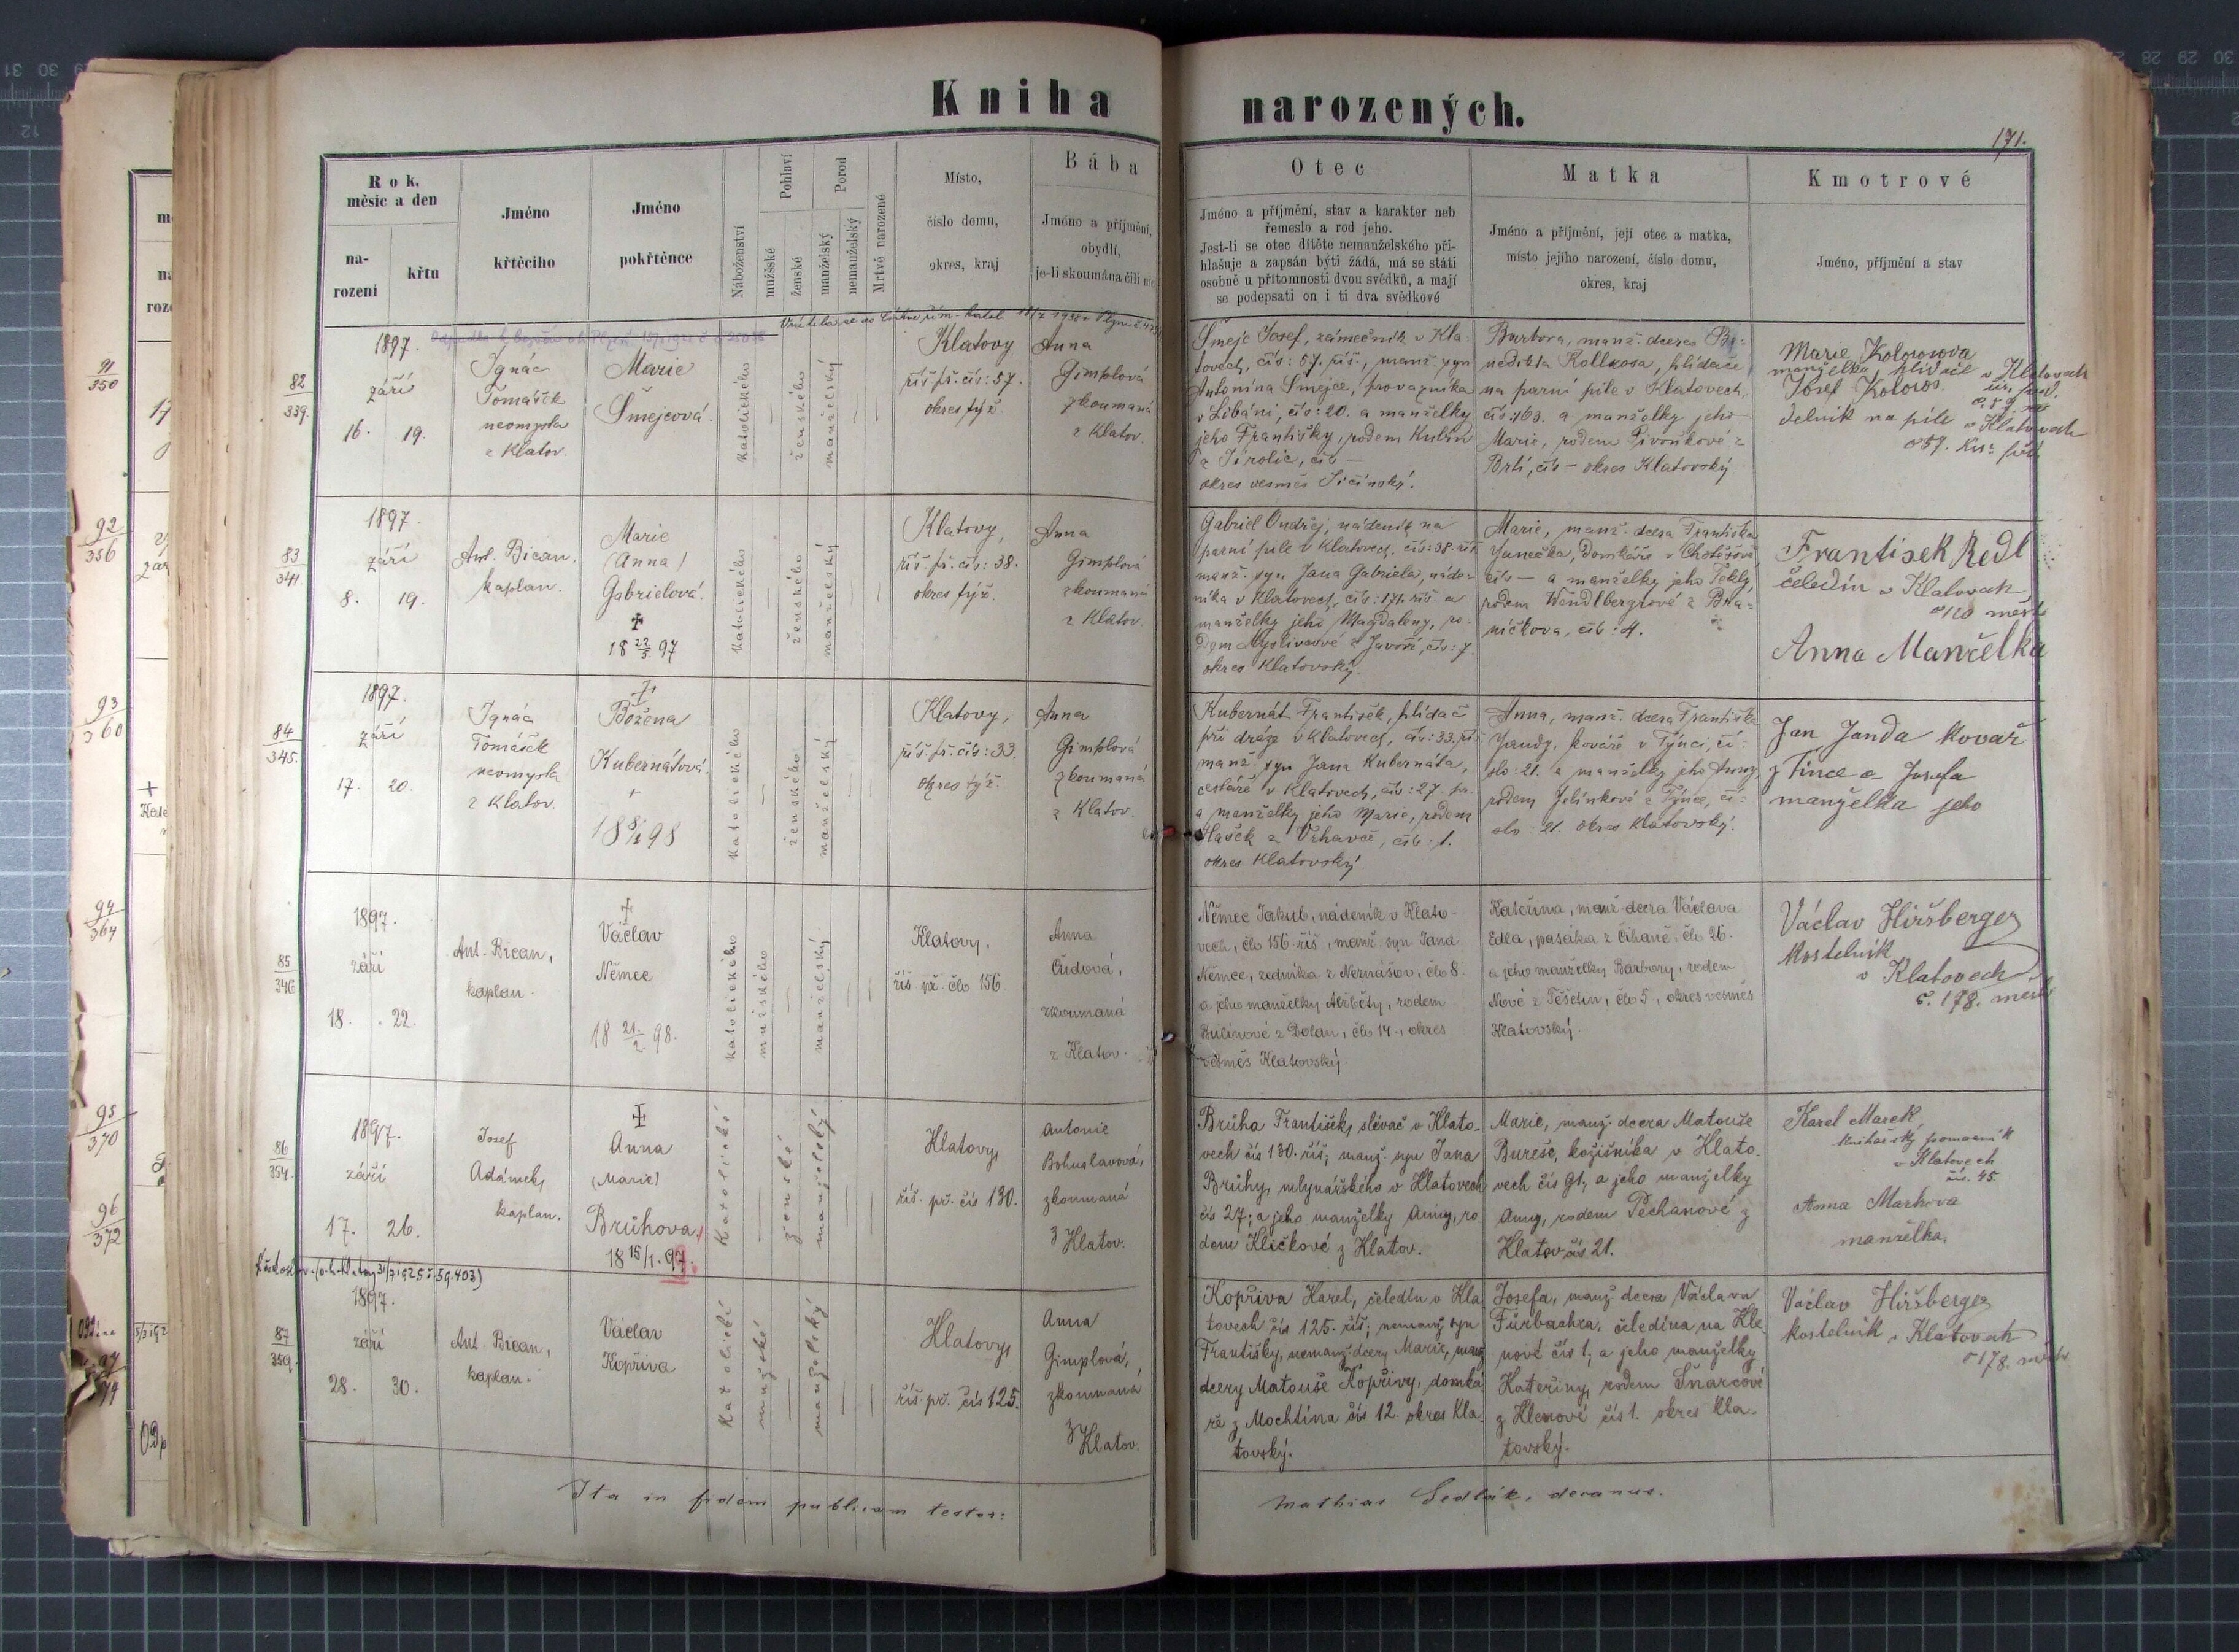 Kniha narozených.
171.
Rok, měsíc a den
narození
křtu
Jméno křtěcího
Jméno pokřtěnce
Náboženství
Pohlaví
mužské
ženské
Porod
manželský
nemanželský
Mrtvě narozené
Místo,
číslo domu,
okres, kraj
Bába
Jméno a příjmění,
obydlí,
je-li skoumána čili nic
Otec
Jméno a příjmění, stav a karakter neb
řemeslo a rod jeho.
Jest-li se otec dítěte nemanželského při-
hlašuje a zapsán býti žádá, má se státi
osobně u přítomnosti dvou svědků, a mají
se podepsati on i ti dva svědkové
Matka
Jméno a příjmění, její otec a matka,
místo jejího narození, číslo domu,
okres, kraj
Kmotrové
Jméno, příjmění a stav
82
339.
1897.
září
16. 19.
Ignác
Tomášek
neomysta
z Klatov.
Marie
Šmejcová.
katolického
ženského
manželský
Klatovy
říš. př. čís: 57.
okres týž.
Anna
Gimplová
zkoumaná
z Klatov.
Šmejc Josef, zámečník v Kla-
tovech, čís: 57. říš., manž. syn
Antonína Šmejce, provazníka
v Libáni, čís: 20. a manželky
jeho Františky, rodem Kubín
okres vesměs Jičínský.
Barbora, manž. dcera Be-
nedikta Kollrosa, hlídače
na parní pile v Klatovech,
čís: 163. a manželky jeho
Marie, rodem Pivoňkové z
Brtí, čís – okres Klatovský
Marie Kolorosova
manželka hlídače v Klatovech
Josef Koloros.
delnik na pile v Klatovech
83
341
1897.
září
8. 19.
Ant. Bican,
kaplan.
Marie
(Anna)
Gabrielová.
18 22/5. 97
katolického
ženského
manželský
Klatovy,
říš. př. čís: 38.
okres týž.
Anna
Gimplová
zkoumaná
z Klatov.
Gabriel Ondřej, nádeník na
parní pile v Klatovech, čís: 38. říš.
manž. syn Jana Gabriela, náde-
níka v Klatovech, čís: 171. říš. a
manželky jeho Magdaleny, ro-
dem Myslivcové z Javoří, čís: 7.
okres Klatovský
Marie, manž. dcera Františka
Janečka, domkáře v Chotěšově
čís – a manželky jeho Tekly,
rodem Wendlbergrové z Bra-
níčkova, čís: 4.
František Redl
čeledín v Klatovech
č 110 měst
Anna Manželka
84
345.
1897.
září
17. 20.
Ignác
Tomášek
neomysta
z Klatov.
Božena
Kubernátová.
katolického
ženského
manželský
Klatovy,
říš. př. čís: 33.
okres týž.
Anna
Gimplová
zkoumaná
z Klatov.
Kubernát František, hlídač
při dráze v Klatovech, čís: 33. př.
manž. syn Jana Kubernáta,
cestáře v Klatovech, čís: 27. př.
a manželky jeho Marie, rodem
Hašek z Vrhavče, čís: 1.
okres Klatovský
Anna, manž. dcera Františka
Jandy, kováře v Týnci, čí-
slo: 21. a manželky jeho Anny,
rodem Jelínkové z Týnce, čí-
slo: 21. okres Klatovský.
Jan Janda kovař
z Tince a Josefa
manželka jeho
85
346
1897.
září
18. 22.
Ant. Bican,
kaplan.
Václav
Němec
18 21./2. 98.
katolického
mužského
manželský
Klatovy.
říš. př. čło 156.
Anna
Čudová,
zkoumaná
z Klatov.
Němec Jakub, nádeník v Klato-
vech, čło 156. říš., manž. syn Jana
Němec, zedníka z Neznášov, čło 8
a jeho manželky Alžběty, rodem
Bulínové z Dolan, čło 14., okres
vesměs Klatovský.
Kateřina, manž. dcera Václava
Edla, pasáka z Čihaně, čło 26.
a jeho manželky Barbory, rodem
Nové z Těšetin, čło 5., okres vesměs
Klatovský.
Václav Hiršberger
Kostelník
v Klatovech
č. 178. měst
86
354.
1897.
září
17. 26.
Josef
Adámek,
kaplan.
Anna
(Marie)
Brůhova
18 15/1. 97.
Katolické
ženské
manželský
Klatovy,
říš. př. čís 130.
Antonie
Bohuslavová,
zkoumaná
z Klatov.
Brůha František, slévač v Klato-
vech čís 130. říš; manž. syn Jana
Brůhy, mlynářského v Klatovech
čís 27; a jeho manželky Anny, ro-
dem Kličkové z Klatov.
Marie, manž. dcera Matouše
Bureše, kožišníka v Klato-
vech čís 91, a jeho manželky
Anny, rodem Pechanové z
Klatov čís 21.
Karel Marek
knihařský pomocník
v Klatovech
čís. 45
Anna Markova
manželka.
87
359.
1897.
září
28. 30.
Ant. Bican,
kaplan.
Václav
Kopřiva
Katolické
mužské
manželský
Klatovy,
říš. př. čís 125.
Anna
Gimplová,
zkoumaná
z Klatov.
Kopřiva Karel, čeledín v Kla-
tovech čís 125. říš; nemanž syn
Františky, nemanž dcery Marie, manž
dcery Matouše Kopřivy, domká-
ře z Mochtína čís 12. okres Kla-
tovský.
Josefa, manž dcera Václava
Fürbachra, čeledína na Kle-
nové čís 1; a jeho manželky
Kateřiny, rodem Šnarcové
z Klenové čís 1. okres Kla-
tovský.
Václav Hiršberger
kostelník v Klatovech
č 178. měst
Ita in fidem publicam testor:
Mathias Sedlák, decanus.
91
350
92
356
93
360
94
364
95
370
96
372